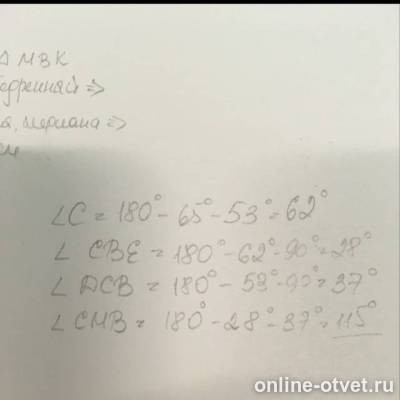 Δ МВК
едренный ⇒
а, медиана ⇒
∠C = 180° - 65° - 53° = 62°
∠ CBE = 180° - 62° - 90° = 28°
∠ ACB = 180° - 53° - 90° = 37°
∠ CMB = 180° - 28° - 37° = 115°
online-otvet.ru